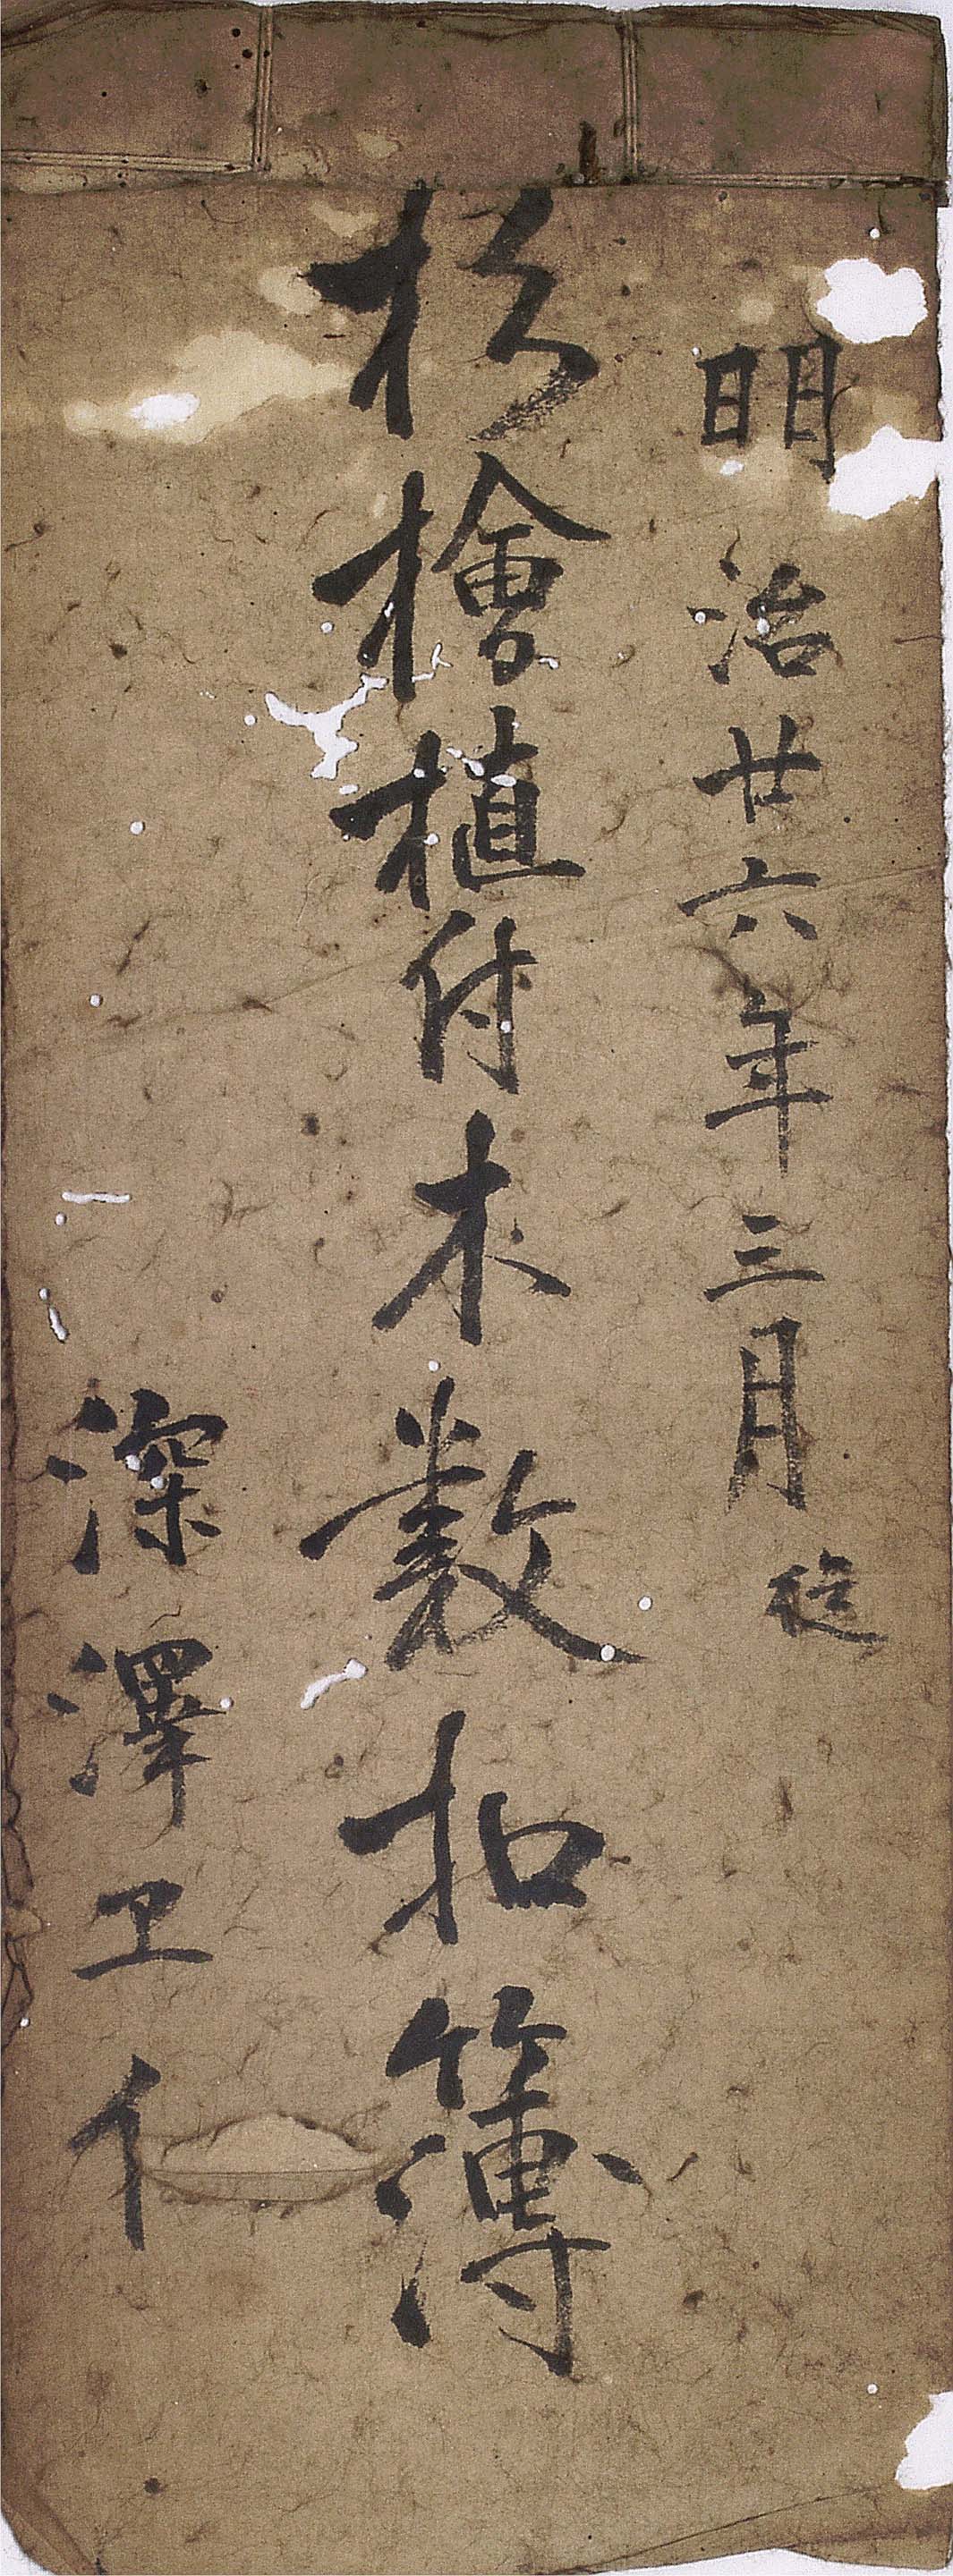 明治廿六年三月従
杉檜植付木数扣簿
深澤卫